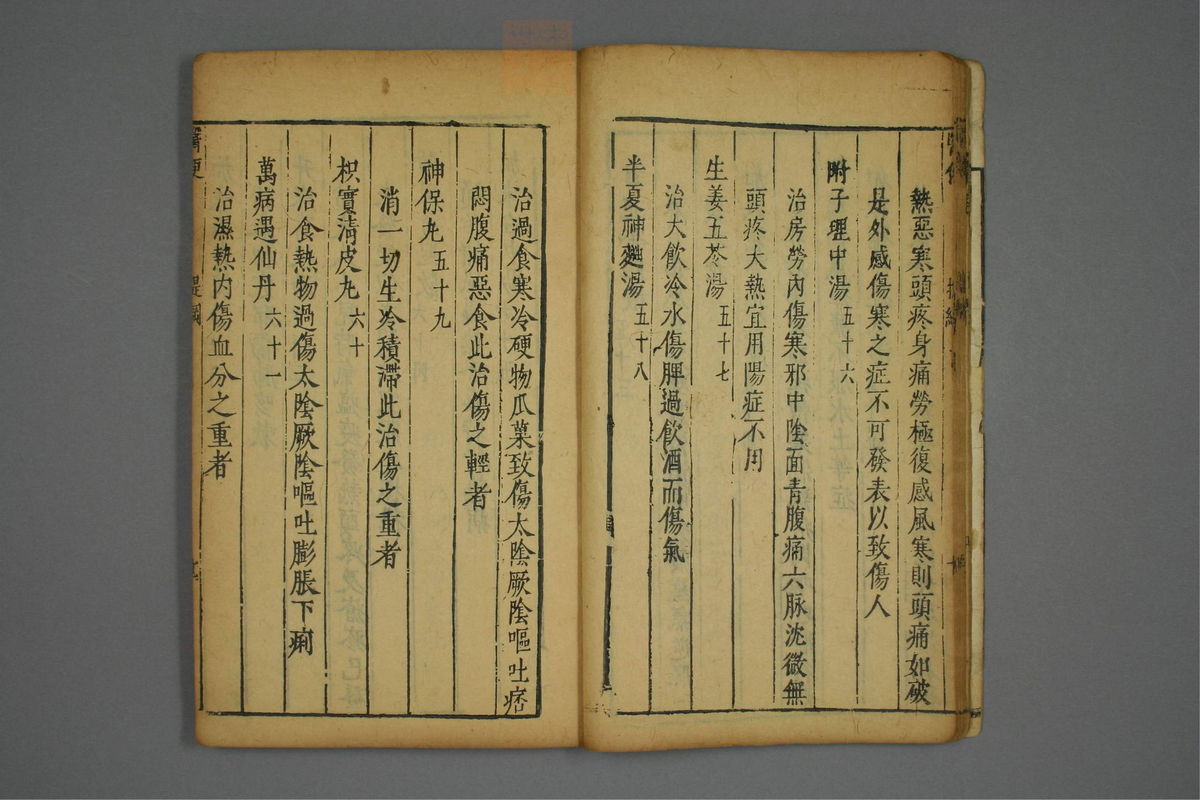 熱惡寒頭疼身痛勞極復感風寒則頭痛如破
是外感傷寒之症不可發表以致傷人
附子理中湯五十六
治房勞內傷寒邪中陰面青腹痛六脉沈微無
頭疼大熱宜用陽症不用
生姜五苓湯五十七
治大飲冷水傷脾過飲酒而傷氣
半夏神麯湯五十八
治過食寒冷硬物瓜菓致傷太陰厥陰嘔吐痞
悶腹痛惡食此治傷之輕者
神保丸五十九
消一切生冷積滯此治傷之重者
枳實淸皮丸六十
治食熱物過傷太陰厥陰嘔吐膨脹下痢
萬病遇仙丹六十一
治濕熱內傷血分之重者